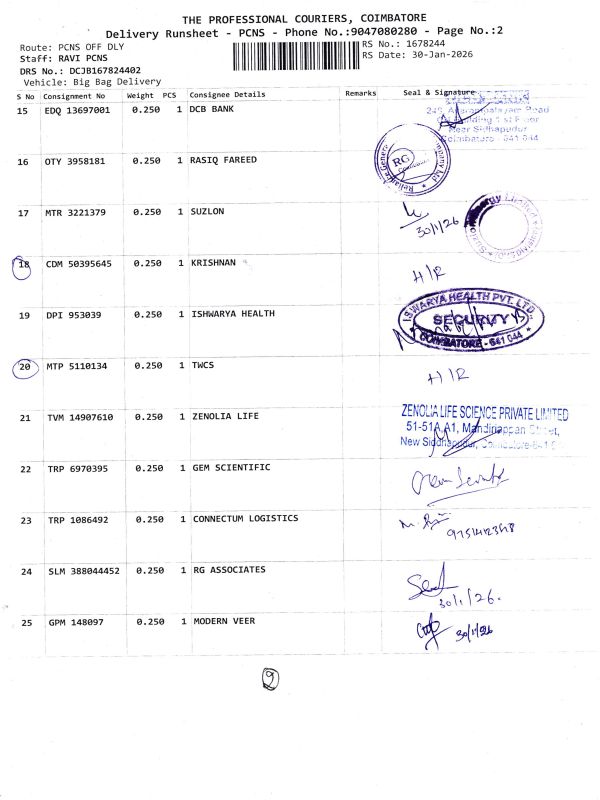 THE PROFESSIONAL COURIERS, COIMBATORE
Delivery Runsheet - PCNS - Phone No.:9047080280 - Page No.:2
Route: PCNS OFF DLY
RS No.: 1678244
Staff: RAVI PCNS
RS Date: 30-Jan-2026
DRS No.: DCJB167824402
Vehicle: Big Bag Delivery
S No Consignment No Weight PCS Consignee Details Remarks Seal & Signature
15 EDQ 13697001 0.250 1 DCB BANK
1st Floor
Near Sidhapudur
Coimbatore - 641 044
16 OTY 3958181 0.250 1 RASIQ FAREED
RG
17 MTR 3221379 0.250 1 SUZLON
30/1/26
18 CDM 50395645 0.250 1 KRISHNAN
H/R
19 DPI 953039 0.250 1 ISHWARYA HEALTH
ISWARYA HEALTH PVT. LTD.
SECURITY
COIMBATORE - 641 044
20 MTP 5110134 0.250 1 TWCS
H/R
21 TVM 14907610 0.250 1 ZENOLIA LIFE
ZENOLIA LIFE SCIENCE PRIVATE LIMITED
51-51A A1, Mandiriappan Street,
New Siddhapudur, Coimbatore-641
22 TRP 6970395 0.250 1 GEM SCIENTIFIC
23 TRP 1086492 0.250 1 CONNECTUM LOGISTICS
24 SLM 388044452 0.250 1 RG ASSOCIATES
30/1/26.
25 GPM 148097 0.250 1 MODERN VEER
30/1/26
9